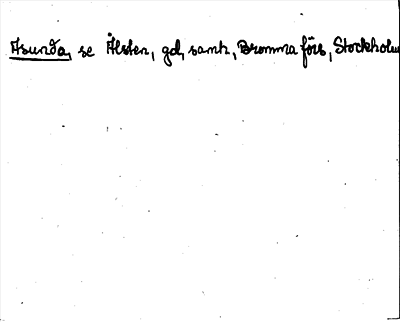 Åsunda, se Ålsten, gd, samh, Bromma förs, Stockholm